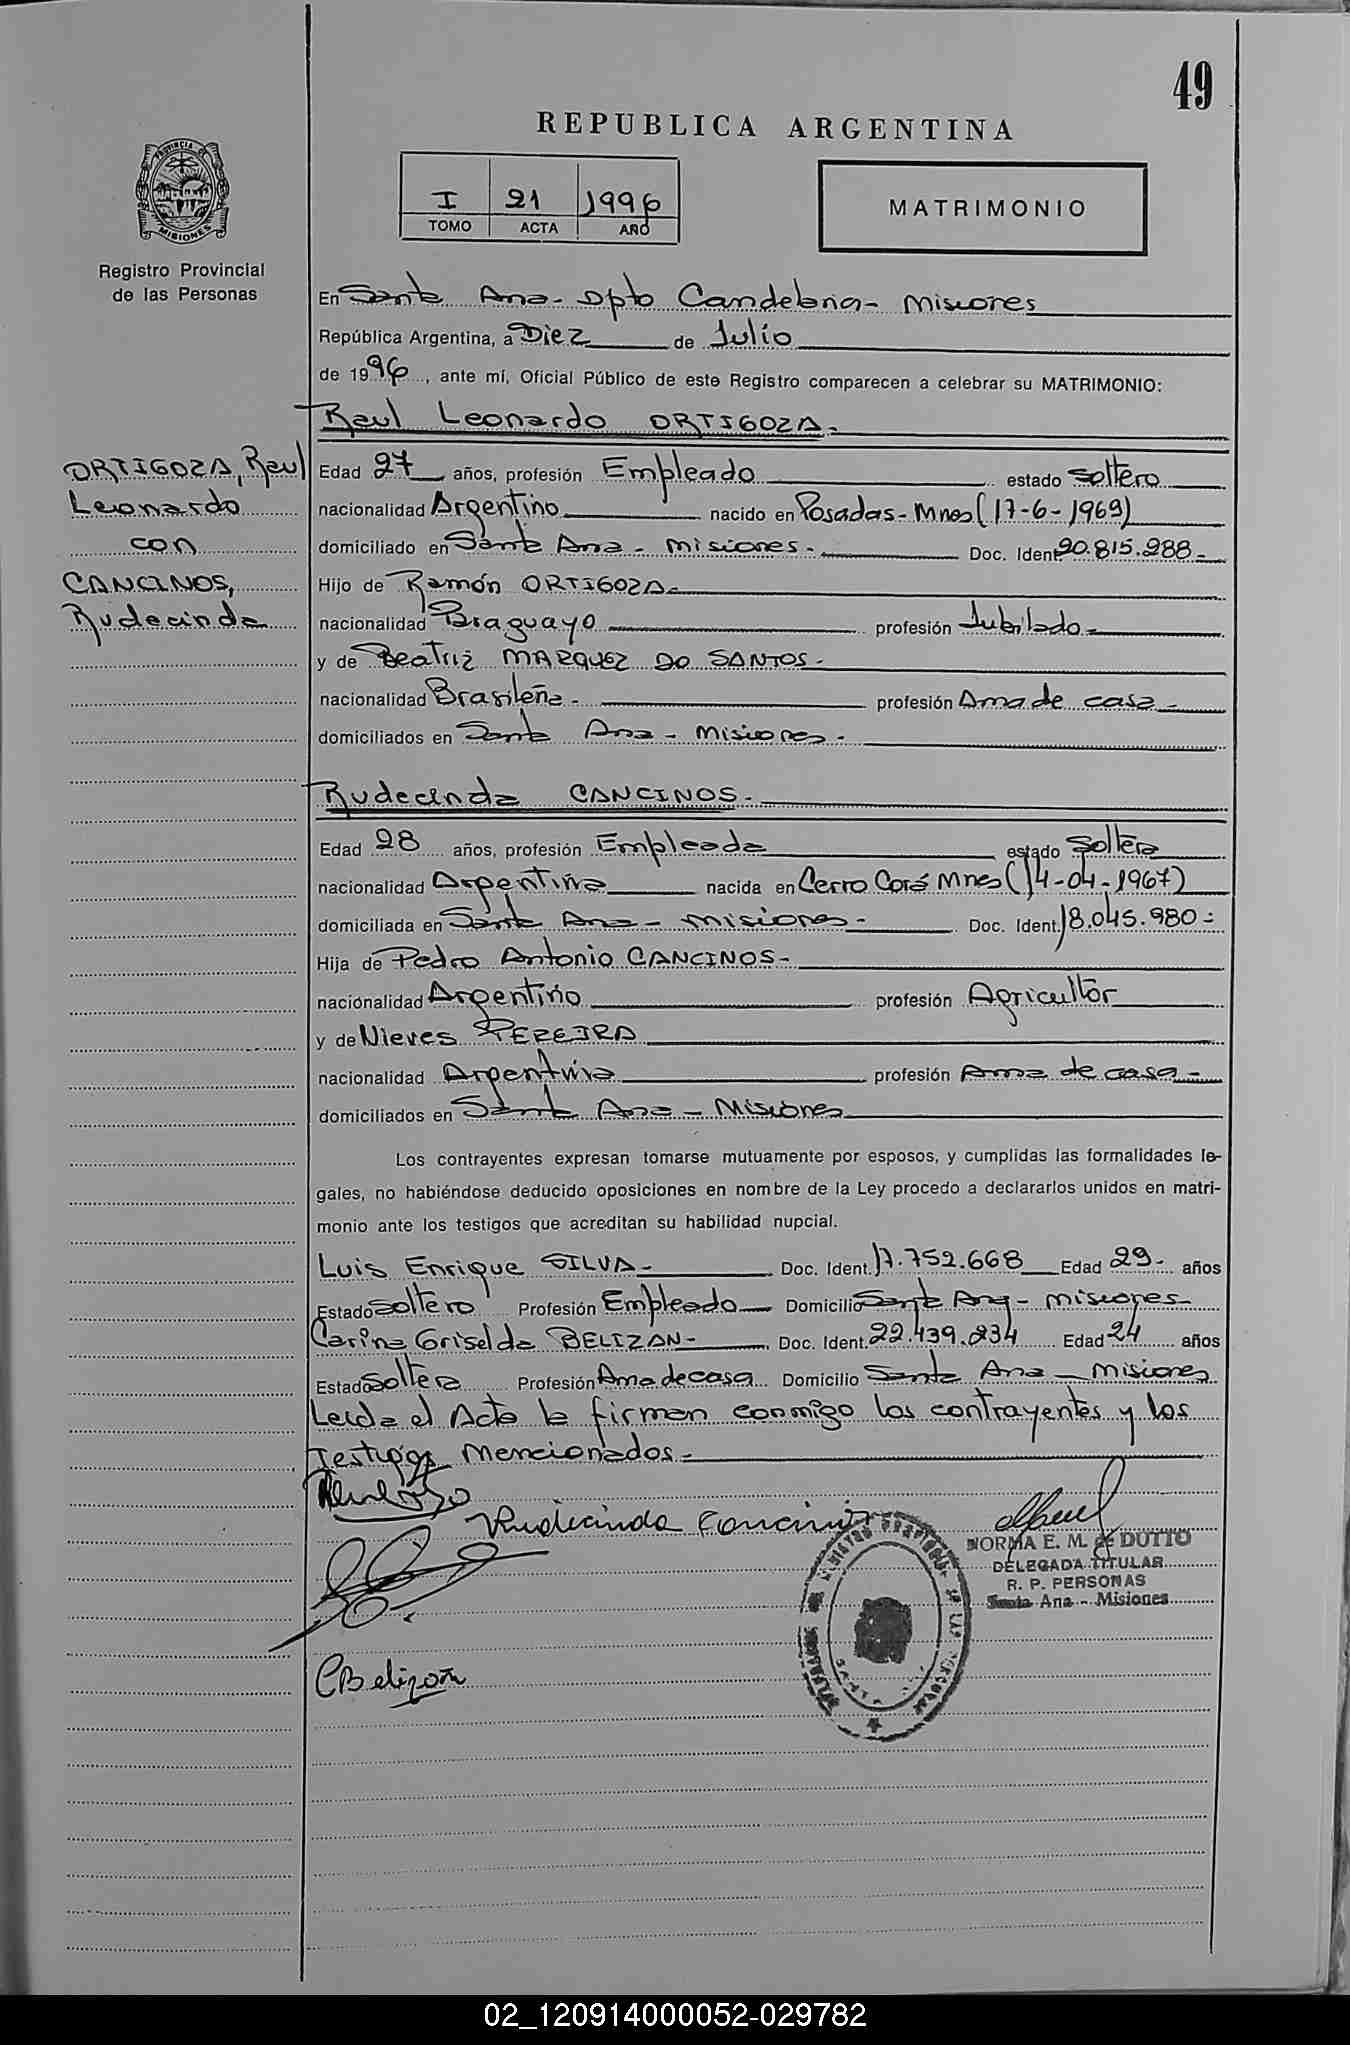 49
REPUBLICA ARGENTINA
I 21 1996
TOMO ACTA AÑO
MATRIMONIO
PROVINCIA DE MISIONES
Registro Provincial
de las Personas
En Santa Ana - Dpto Candelaria - Misiones
República Argentina, a Diez de Julio
de 1996, ante mí, Oficial Público de este Registro comparecen a celebrar su MATRIMONIO:
Raul Leonardo ORTIGOZA.
ORTIGOZA, Raul
Leonardo
con
CANCINOS,
Rudecinda
Edad 27 años, profesión Empleado estado soltero
nacionalidad Argentino nacido en Posadas - Mnes (17-6-1969)
domiciliado en Santa Ana - Misiones - Doc. Ident. 20.815.288 -
Hijo de Ramón ORTIGOZA -
nacionalidad Paraguayo profesión Jubilado -
y de Beatriz MARQUEZ DO SANTOS -
nacionalidad Brasileña - profesión Ama de casa -
domiciliados en Santa Ana - Misiones -
Rudecinda CANCINOS -
Edad 28 años, profesión Empleada estado Soltera
nacionalidad Argentina nacida en Cerro Corá Mnes (14-04-1967)
domiciliada en Santa Ana - misiones - Doc. Ident. 18.045.980 -
Hija de Pedro Antonio CANCINOS -
nacionalidad Argentino profesión Agricultor
y de Nieves PEREIRA
nacionalidad Argentina profesión Ama de casa -
domiciliados en Santa Ana - Misiones
Los contrayentes expresan tomarse mutuamente por esposos, y cumplidas las formalidades le-
gales, no habiéndose deducido oposiciones en nombre de la Ley procedo a declararlos unidos en matri-
monio ante los testigos que acreditan su habilidad nupcial.
Luis Enrique SILVA - Doc. Ident. 17.752.668 Edad 29 - años
Estado soltero Profesión Empleado Domicilio Santa Ana - misiones -
Carina Griselda BELIZAN - Doc. Ident. 22.439.234 Edad 24 años
Estado Soltera Profesión Ama de casa Domicilio Santa Ana - Misiones
Leida el Acta la firman conmigo los contrayentes y los
Testigos Mencionados -
Rudicinda Cancinos
NORMA E. M. de DUTTO
DELEGADA TITULAR
R. P. PERSONAS
Santa Ana - Misiones
CBelizan
02_120914000052-029782